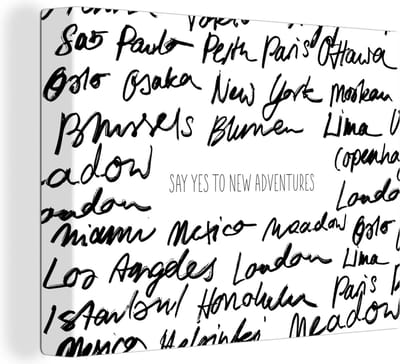 Tokio
São Paulo Perth Paris Ottawa
Oslo Osaka New York
Brussels Lima
Copenha
adow
SAY YES TO NEW ADVENTURES
London
Miami Mexico meadow Oslo
Los Angeles London Lima
Istanbul Honolulu Paris
Mexico Helsinki meadow